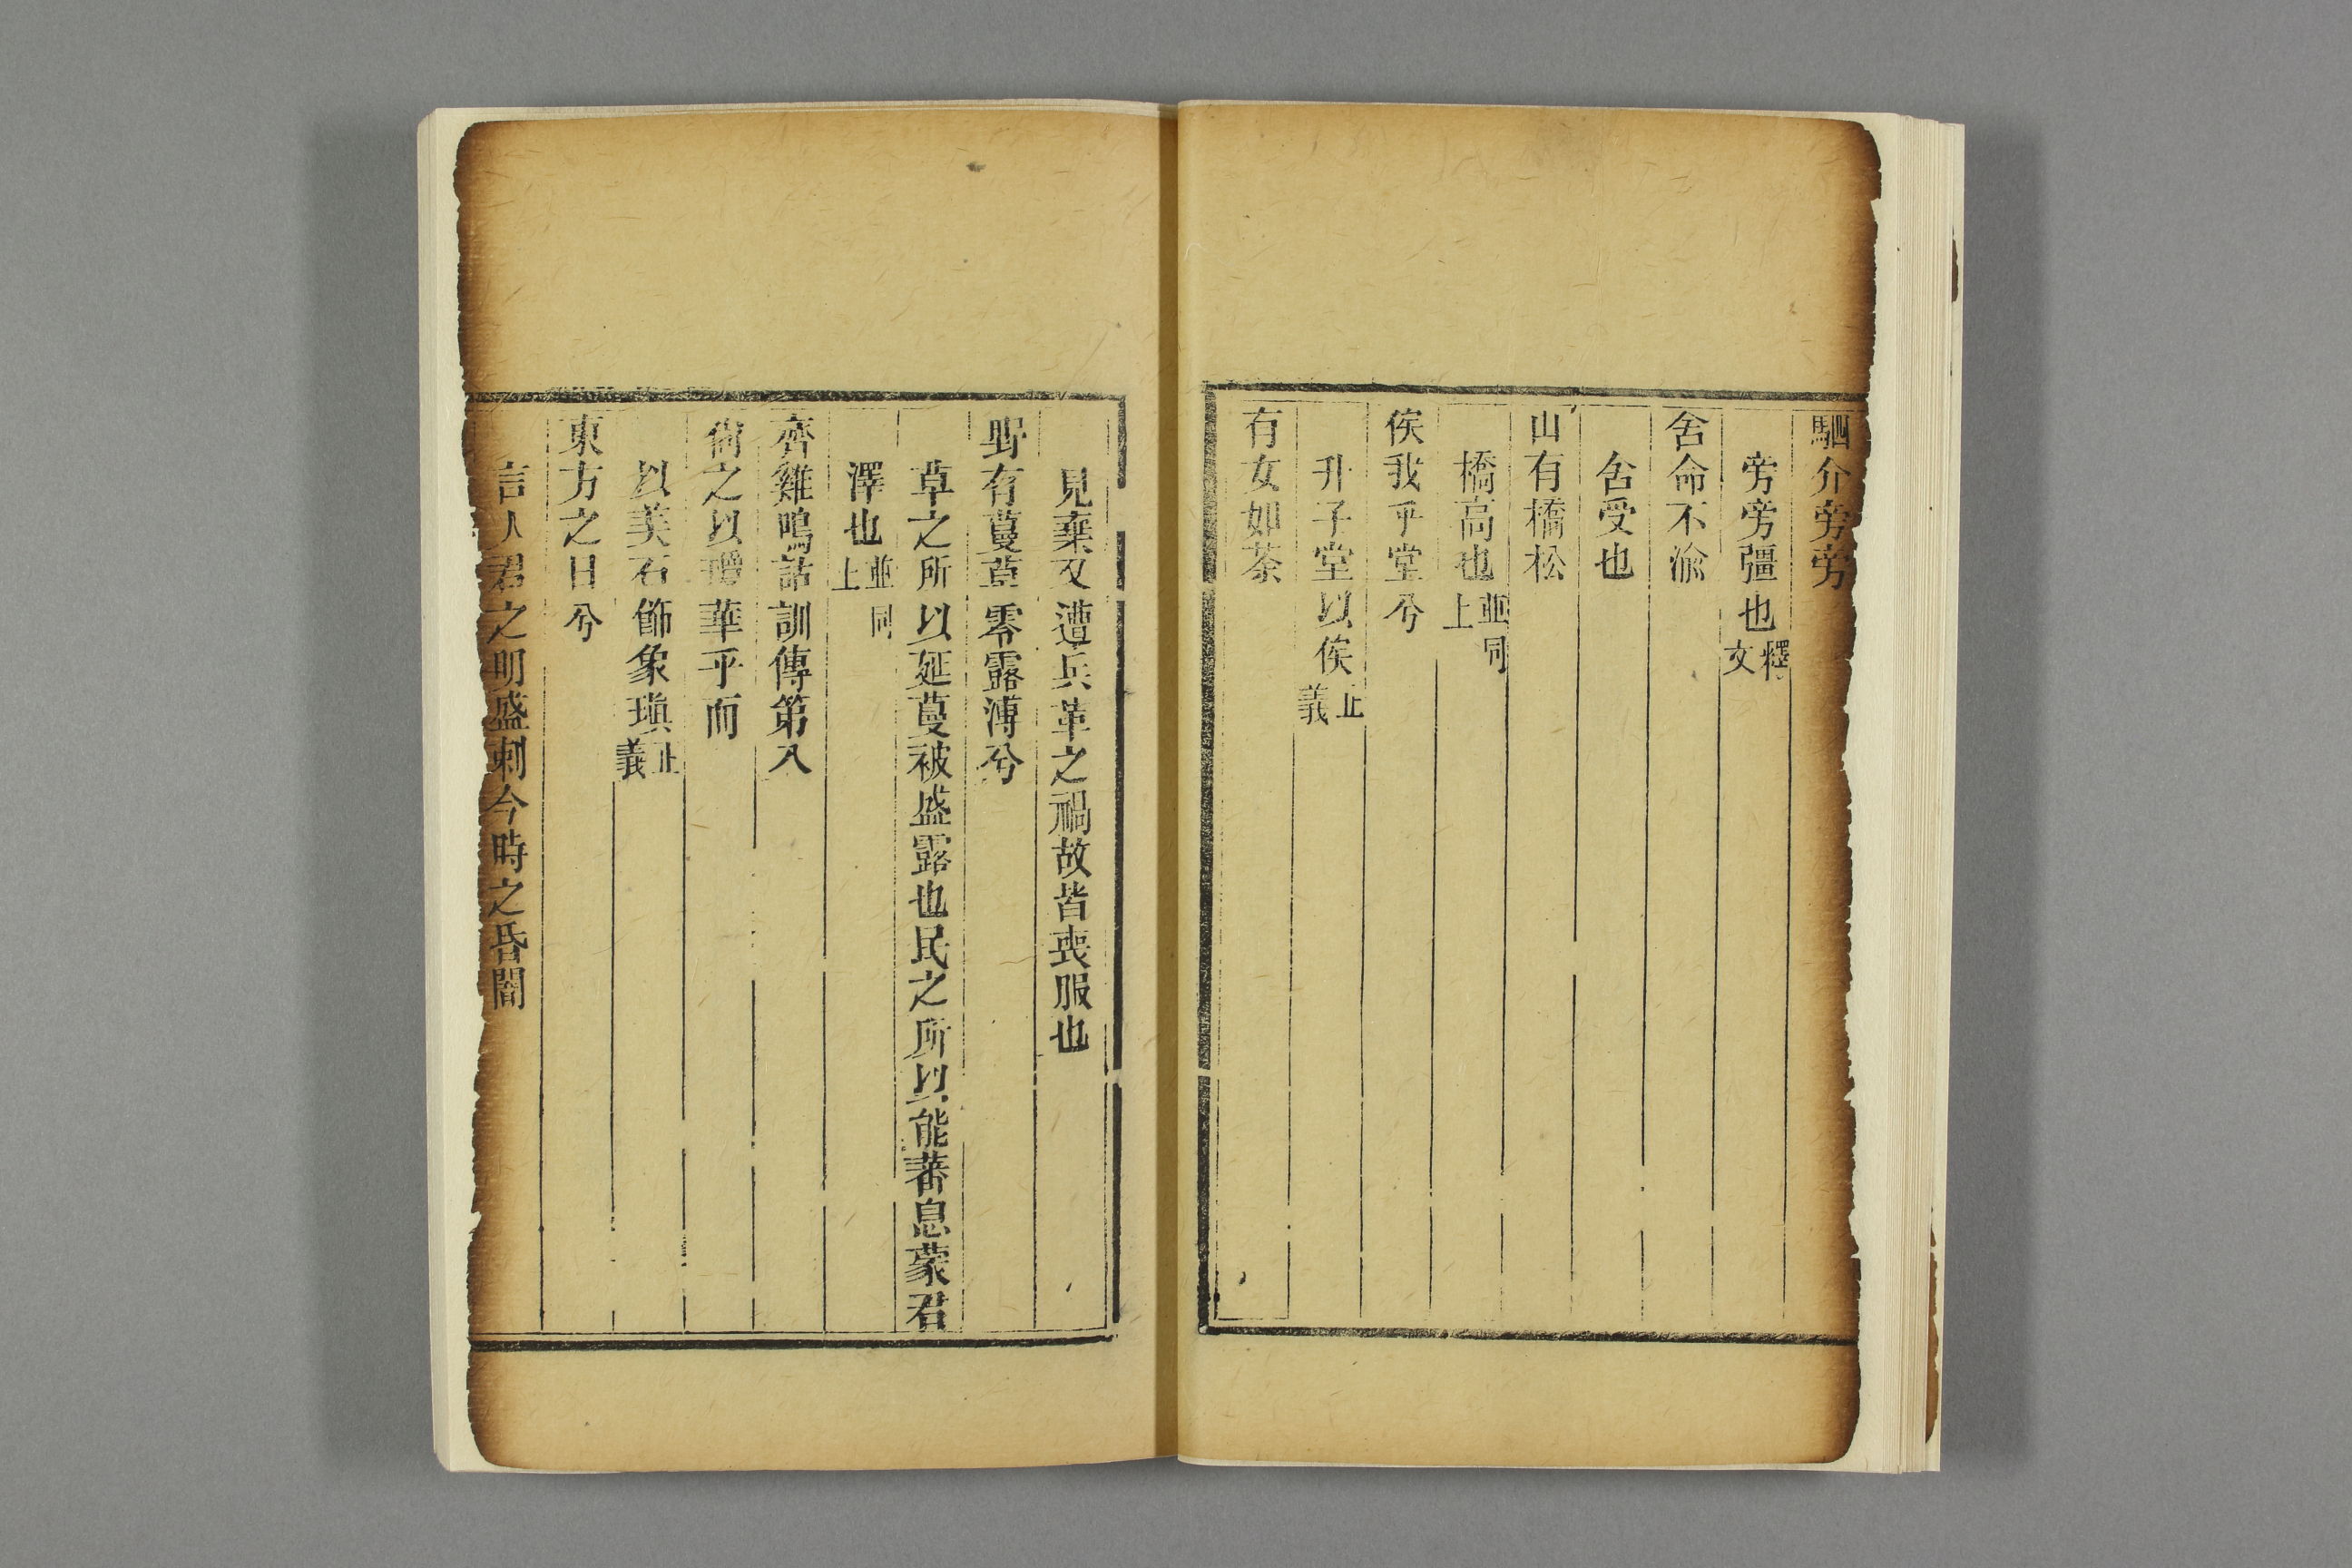 駟介旁旁
旁旁彊也釋文
舍命不渝
舍受也
山有橋松
橋高也並同上
俟我乎堂兮
升于堂以俟正義
有女如荼
見棄又遭兵革之禍故皆喪服也
野有蔓草零露漙兮
草之所以延蔓被盛露也民之所以能蕃息蒙君
澤也並同上
齊雞鳴詁訓傳第八
尚之以瓊華乎而
以美石飾象瑱正義
東方之日兮
言人君之明盛刺今時之昏闇